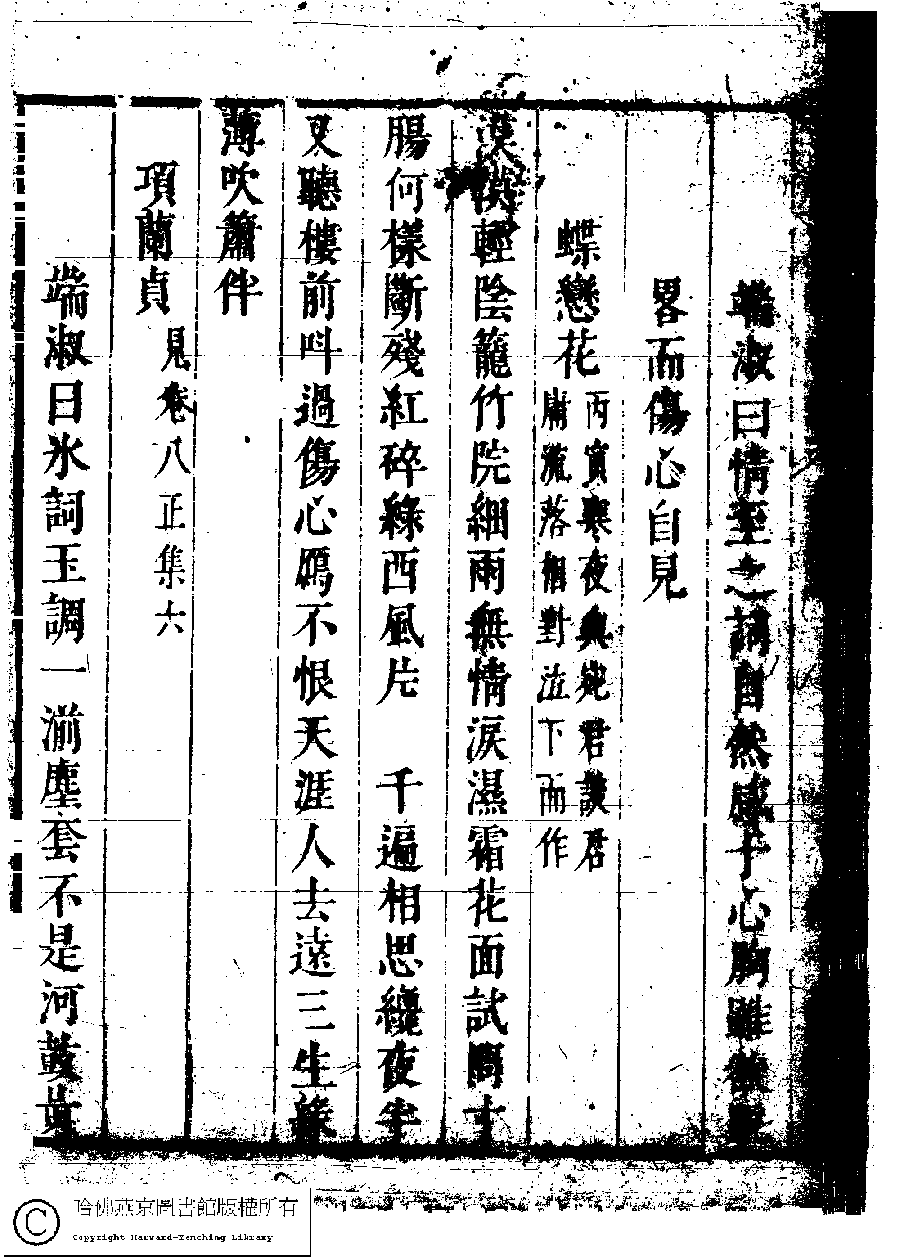 端淑曰情至之語自然感于心胸雖微
畧而傷心自見
蝶戀花
丙寅寒夜與宛君談君
庸流落相對泣下而作
漠漠輕陰籠竹院細雨無情淚濕霜花面試問寸
腸何樣斷殘紅碎綠西風片　千遍相思纔夜半
又聽樓前呌過傷心鴈不恨天涯人去遠三生緣
薄吹簫伴
項蘭貞 見卷八正集六
端淑曰氷詞玉調一湔塵套不是河鼓黃
哈佛燕京圖書館版權所有
Copyright Harvard-Yenching Library